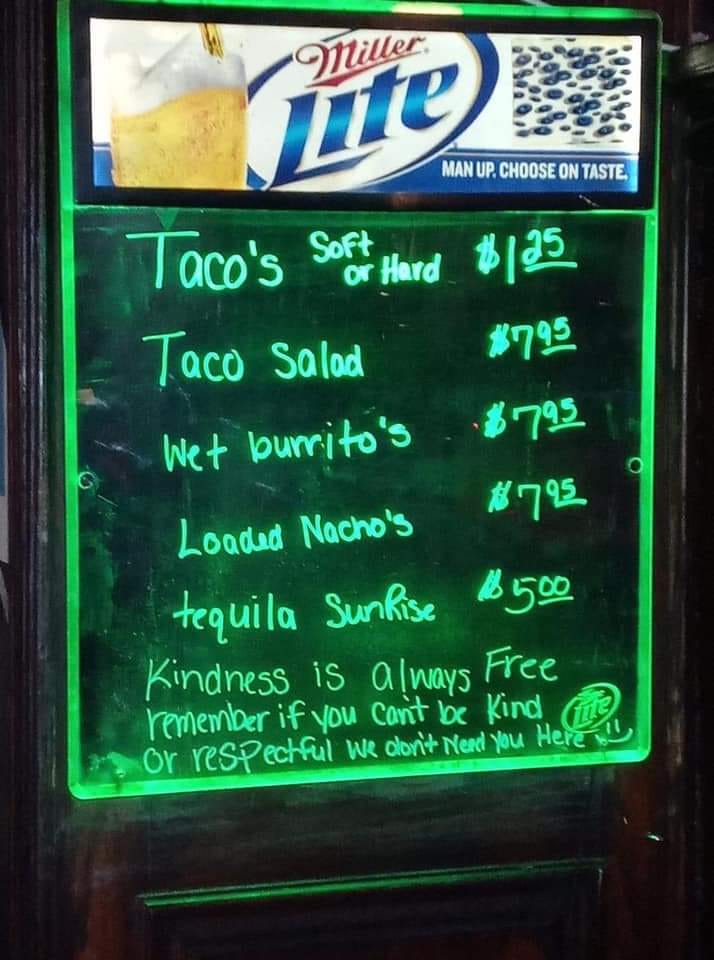 Miller
Lite
MAN UP. CHOOSE ON TASTE.
Taco's Soft or Hard $1 25
Taco Salad $7 95
Wet burrito's $7 95
Loaded Nacho's $7 95
tequila SunRise $5 00
Kindness is always Free
remember if you can't be Kind
or resPectful we don't Need you Here !!!
Lite